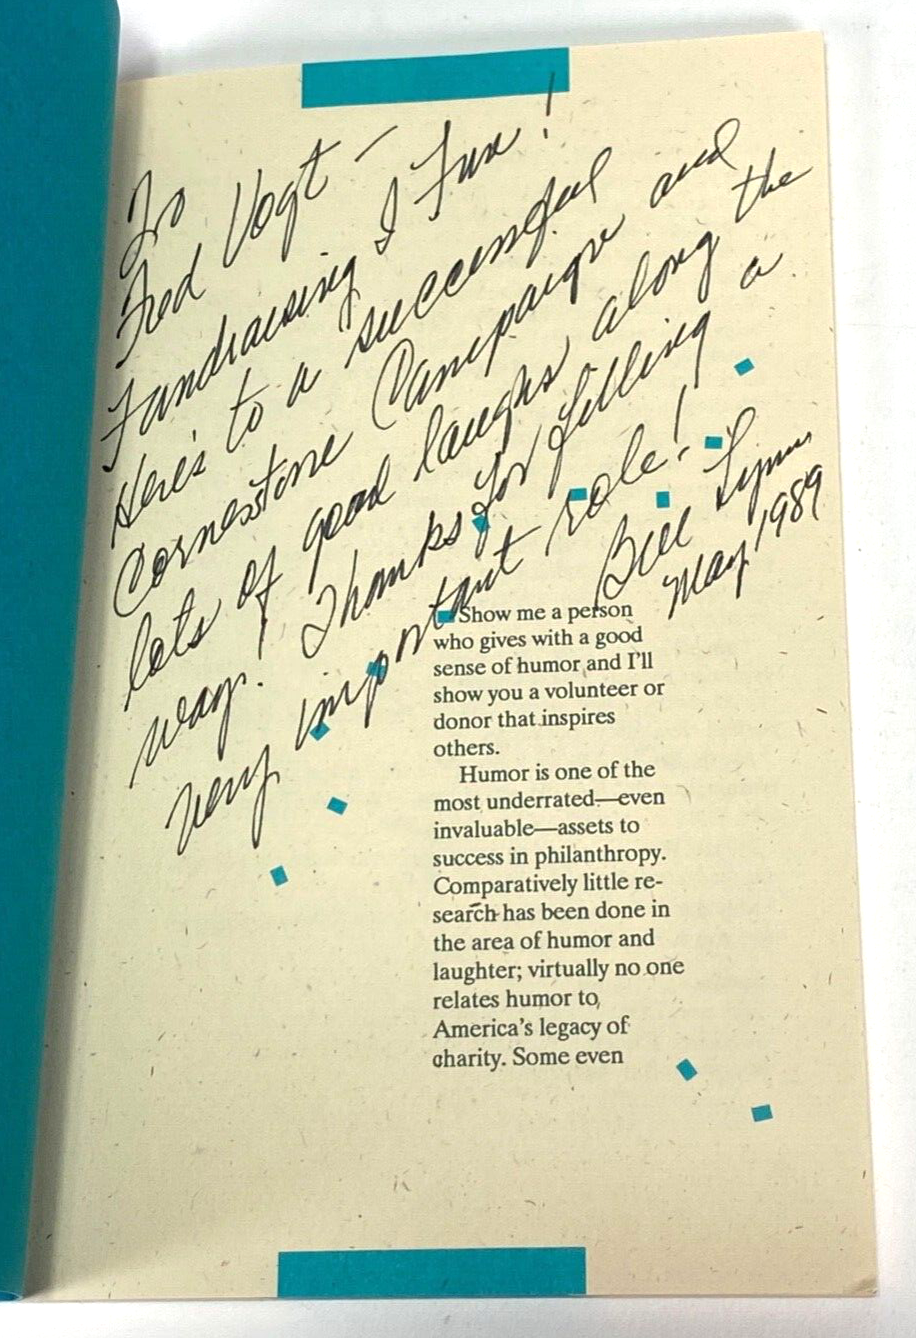 To
Fred Vogt —
Fundraising I Fun!
Here's to a successful
Cornerstone Campaign and
lots of good laughs along the
way! Thanks for filling a
very important role!
Bill Lynn
May, 1989
Show me a person
who gives with a good
sense of humor and I'll
show you a volunteer or
donor that inspires
others.
Humor is one of the
most underrated—even
invaluable—assets to
success in philanthropy.
Comparatively little re-
search has been done in
the area of humor and
laughter; virtually no one
relates humor to
America's legacy of
charity. Some even